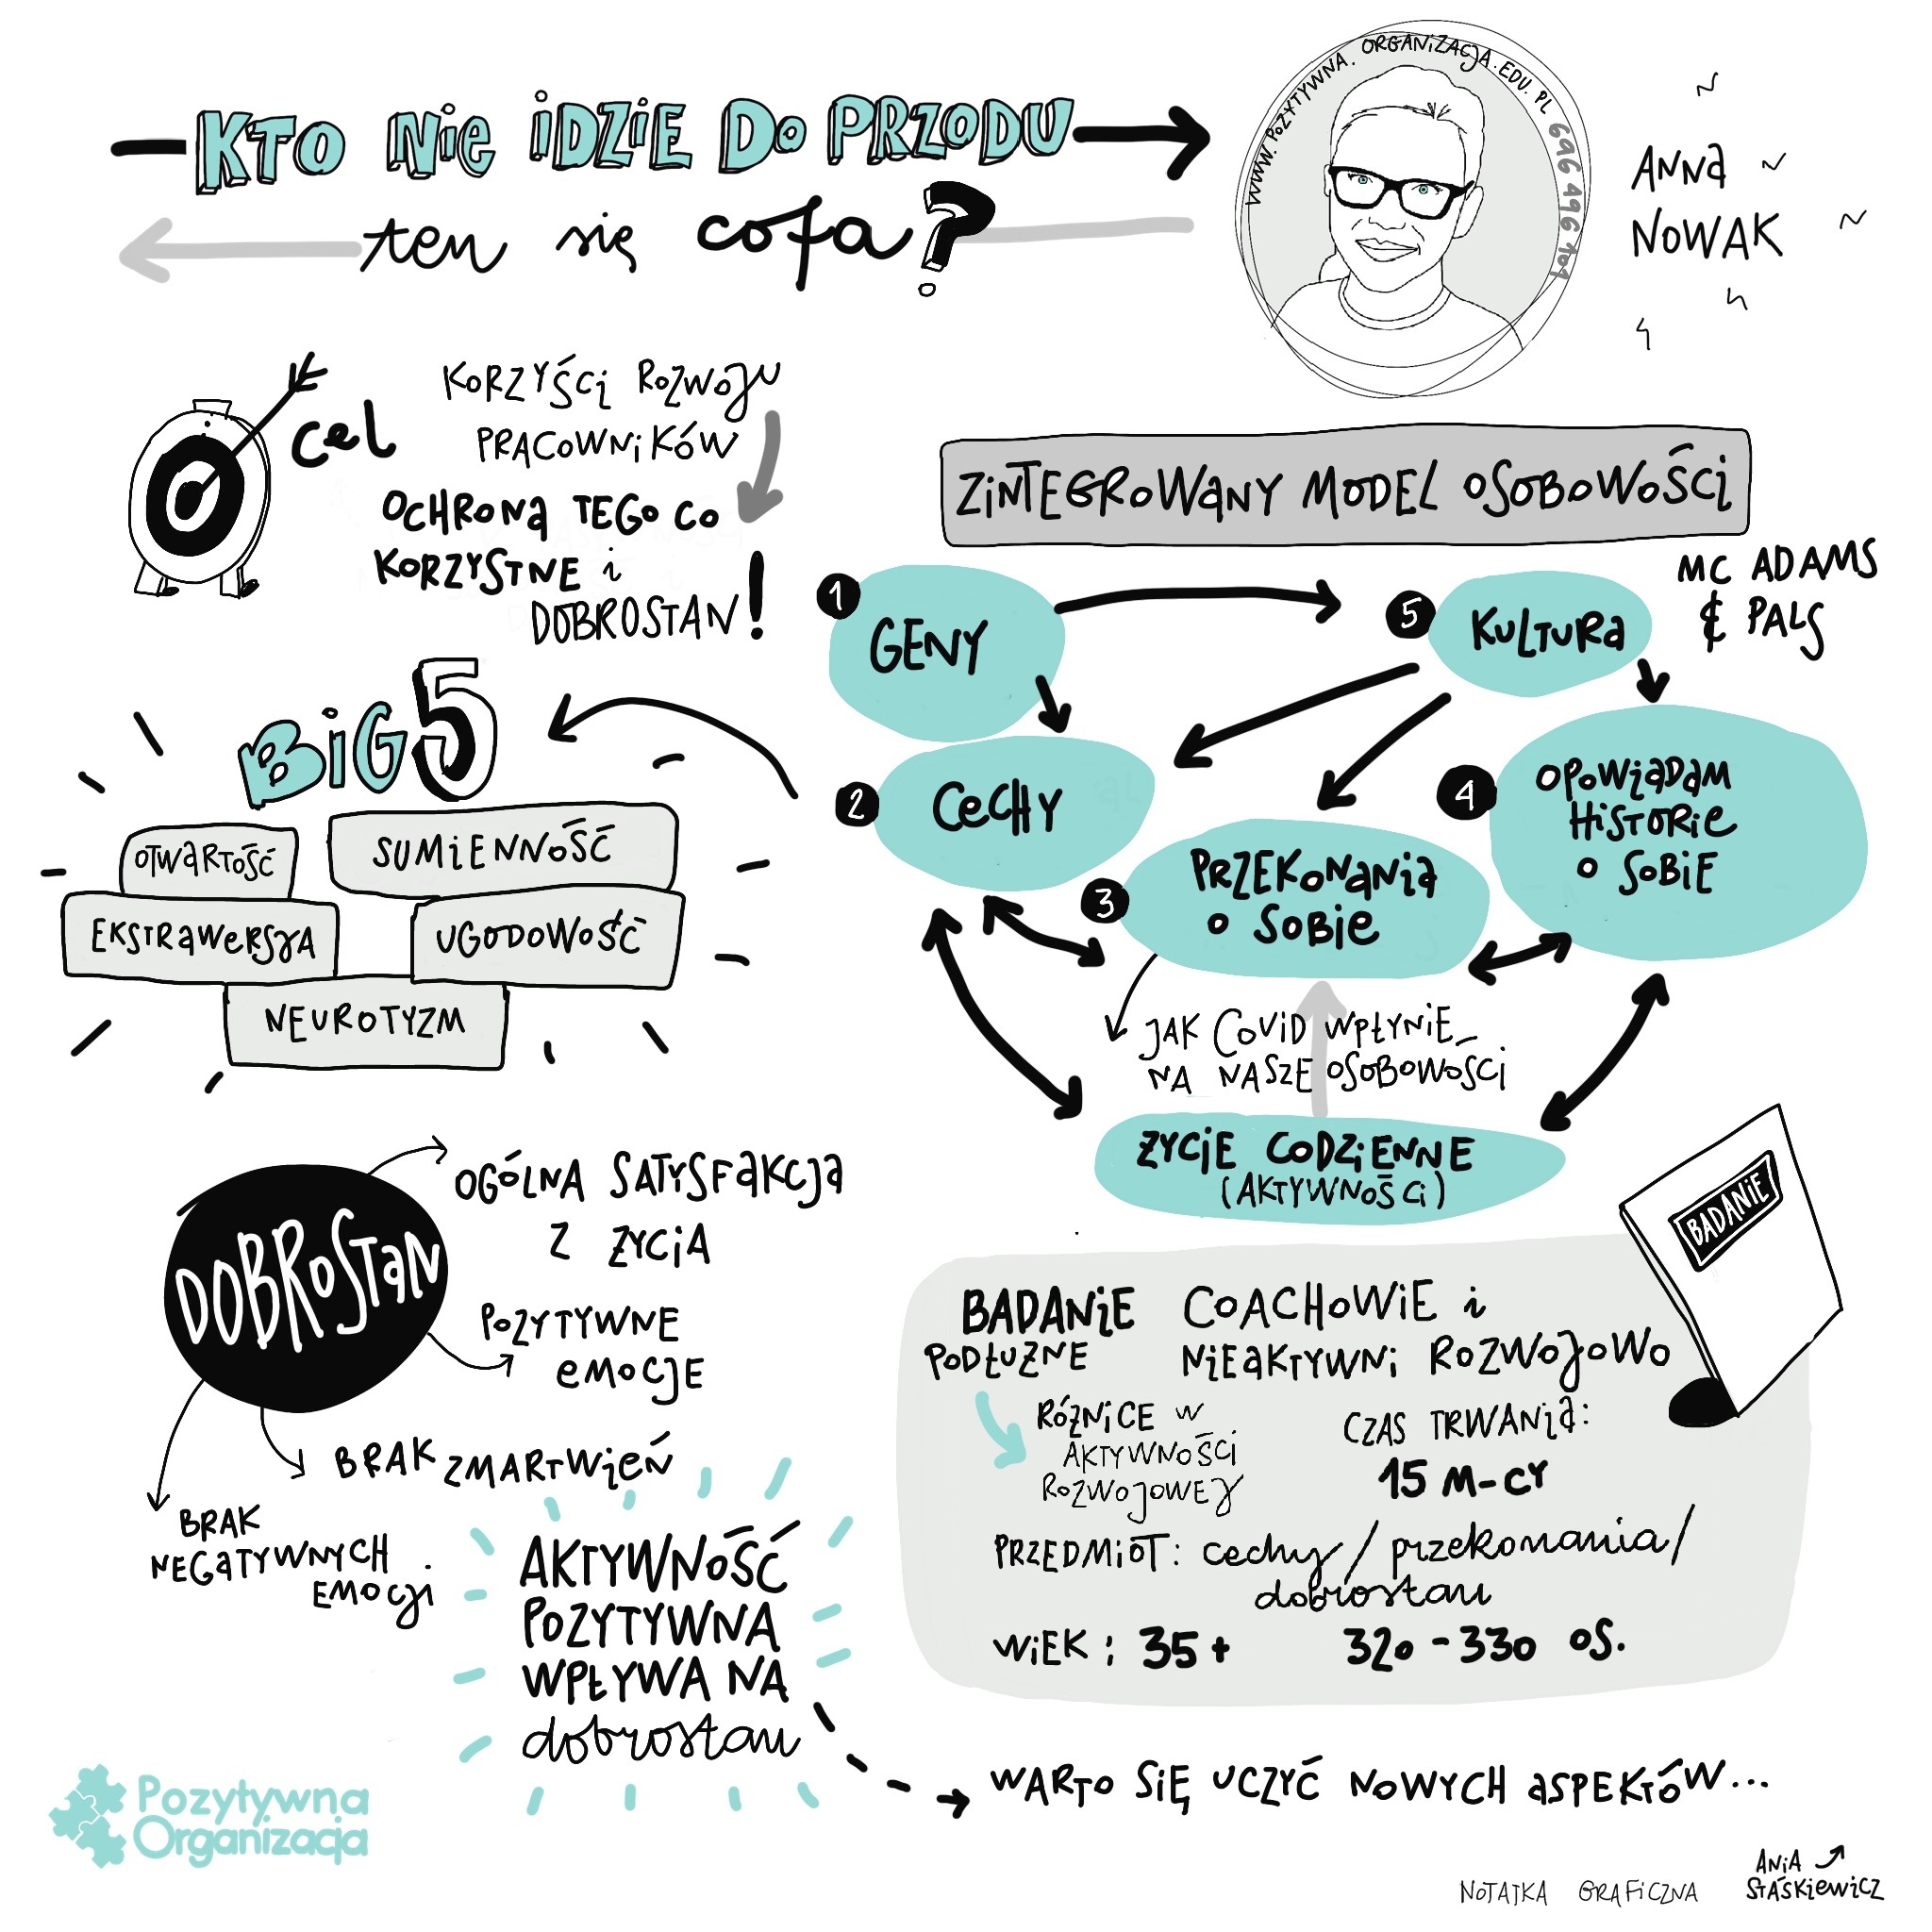 KTO NIE IDZIE DO PRZODU
ten się cofa?
WWW.POZYTYWNA.ORGANIZACJA.EDU.PL 696 496 101
ANNA
NOWAK
cel
KORZYŚCI ROZWOJU
PRACOWNIKÓW
OCHRONA TEGO CO
KORZYSTNE i
DOBROSTAN!
ZINTEGROWANY MODEL OSOBOWOŚCI
MC ADAMS
& PALS
1 GENY
5 KULTURA
2 CECHY
4 OPOWIADAM
HISTORIE
O SOBIE
3 PRZEKONANIA
O SOBIE
JAK COVID WPŁYNIE
NA NASZE OSOBOWOŚCI
ŻYCIE CODZIENNE
(AKTYWNOŚCI)
BIG 5
OTWARTOŚĆ
SUMIENNOŚĆ
EKSTRAWERSJA
UGODOWOŚĆ
NEUROTYZM
DOBROSTAN
OGÓLNA SATYSFAKCJA
Z ŻYCIA
POZYTYWNE
EMOCJE
BRAK ZMARTWIEŃ
BRAK
NEGATYWNYCH
EMOCJI
AKTYWNOŚĆ
POZYTYWNA
WPŁYWA NA
dobrostan
BADANIE
BADANIE COACHOWIE i
PODŁUŻNE NIEAKTYWNI ROZWOJOWO
RÓŻNICE W
AKTYWNOŚCI
ROZWOJOWEJ
CZAS TRWANIA:
15 M-CY
PRZEDMIOT: cechy / przekonania /
dobrostan
WIEK: 35+ 320-330 OS.
WARTO SIĘ UCZYĆ NOWYCH ASPEKTÓW...
Pozytywna
Organizacja
NOTATKA GRAFICZNA
ANIA
STAŚKIEWICZ